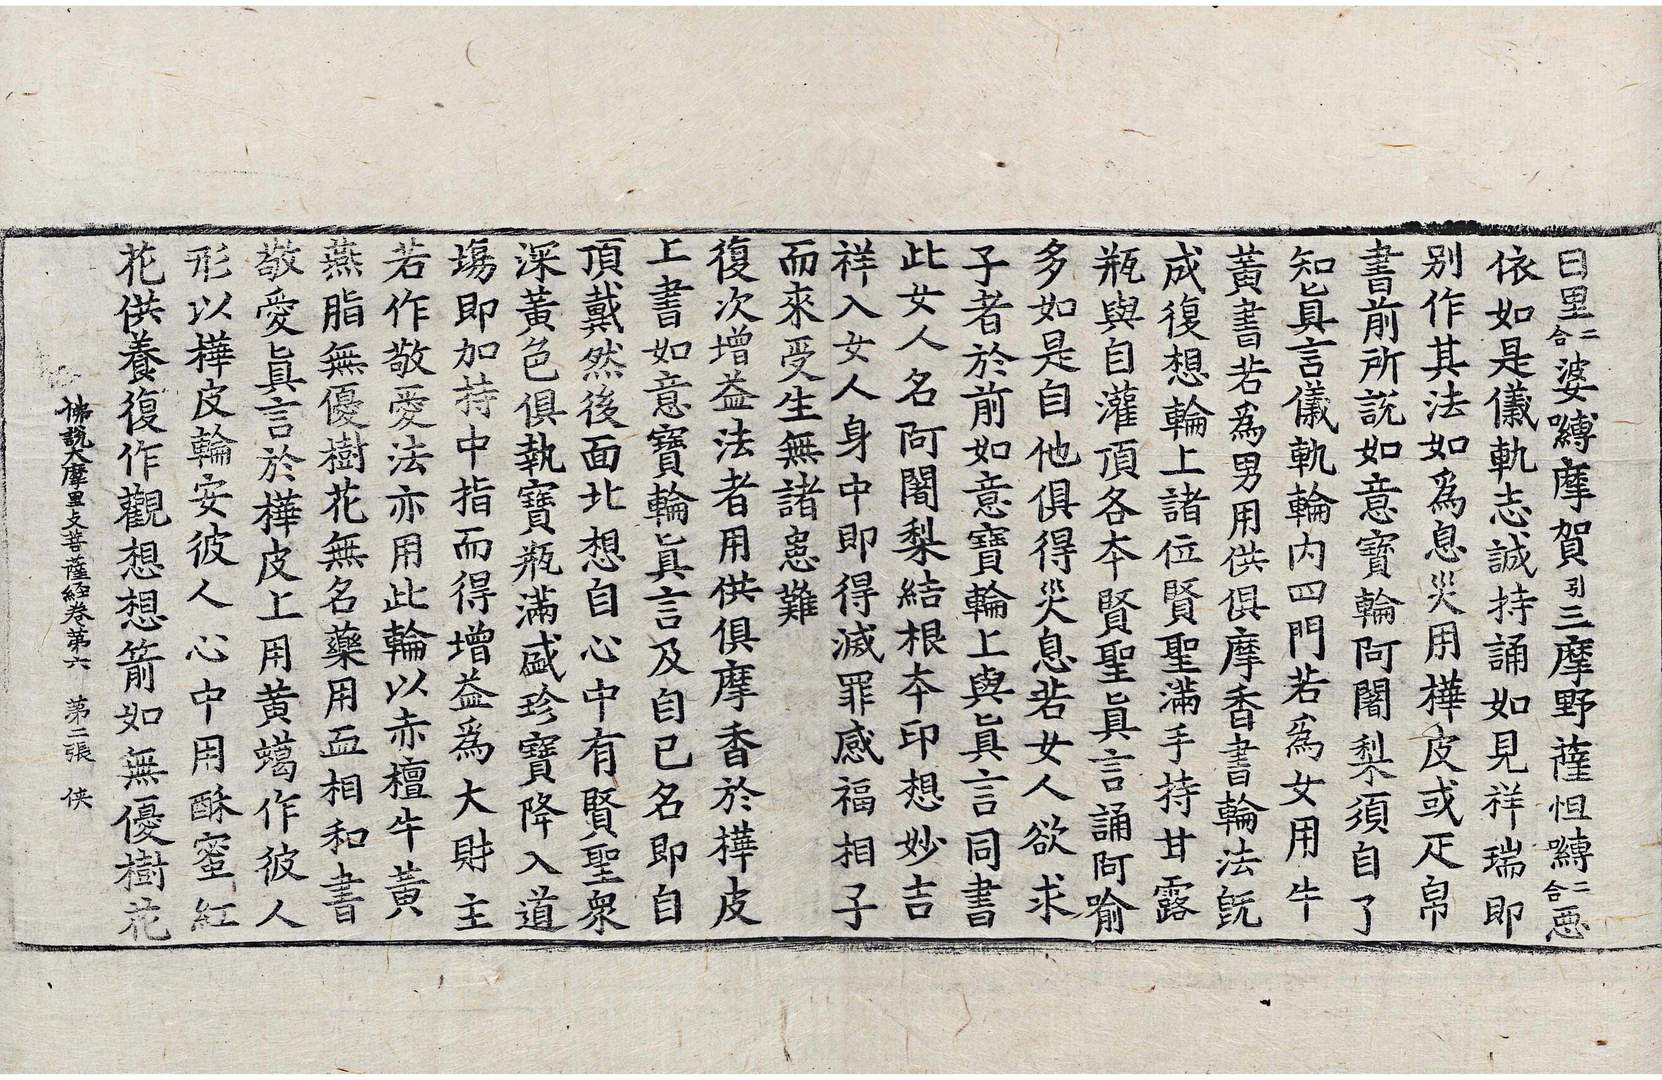 曰里二合婆嚩摩賀引三摩野薩怛嚩二合惡
依如是儀軌志誠持誦如見祥瑞即
別作其法如爲息災用樺皮或疋帛
書前所説如意寶輪阿闍梨須自了
知眞言儀軌輪内四門若爲女用牛
黃書若爲男用供俱摩香書輪法旣
成復想輪上諸位賢聖滿手持甘露
瓶與自灌頂各夲賢聖眞言誦阿喻
多如是自他俱得災息若女人欲求
子者於前如意寶輪上與眞言同書
此女人名阿闍梨結根夲印想妙吉
祥入女人身中即得滅罪感福相子
而來受生無諸患難
復次增益法者用供俱摩香於樺皮
上書如意寶輪眞言及自己名即自
頂戴然後面北想自心中有賢聖衆
深黃色俱執寶瓶滿盛珍寶降入道
塲即加持中指而得增益爲大財主
若作敬愛法亦用此輪以赤檀牛黃
燕脂無優樹花無名藥用血相和書
敬愛眞言於樺皮上用黃蠟作彼人
形以樺皮輪安彼人心中用酥蜜紅
花供養復作觀想想箭如無優樹花
佛說大摩里支菩薩經卷第六　第二張　俠